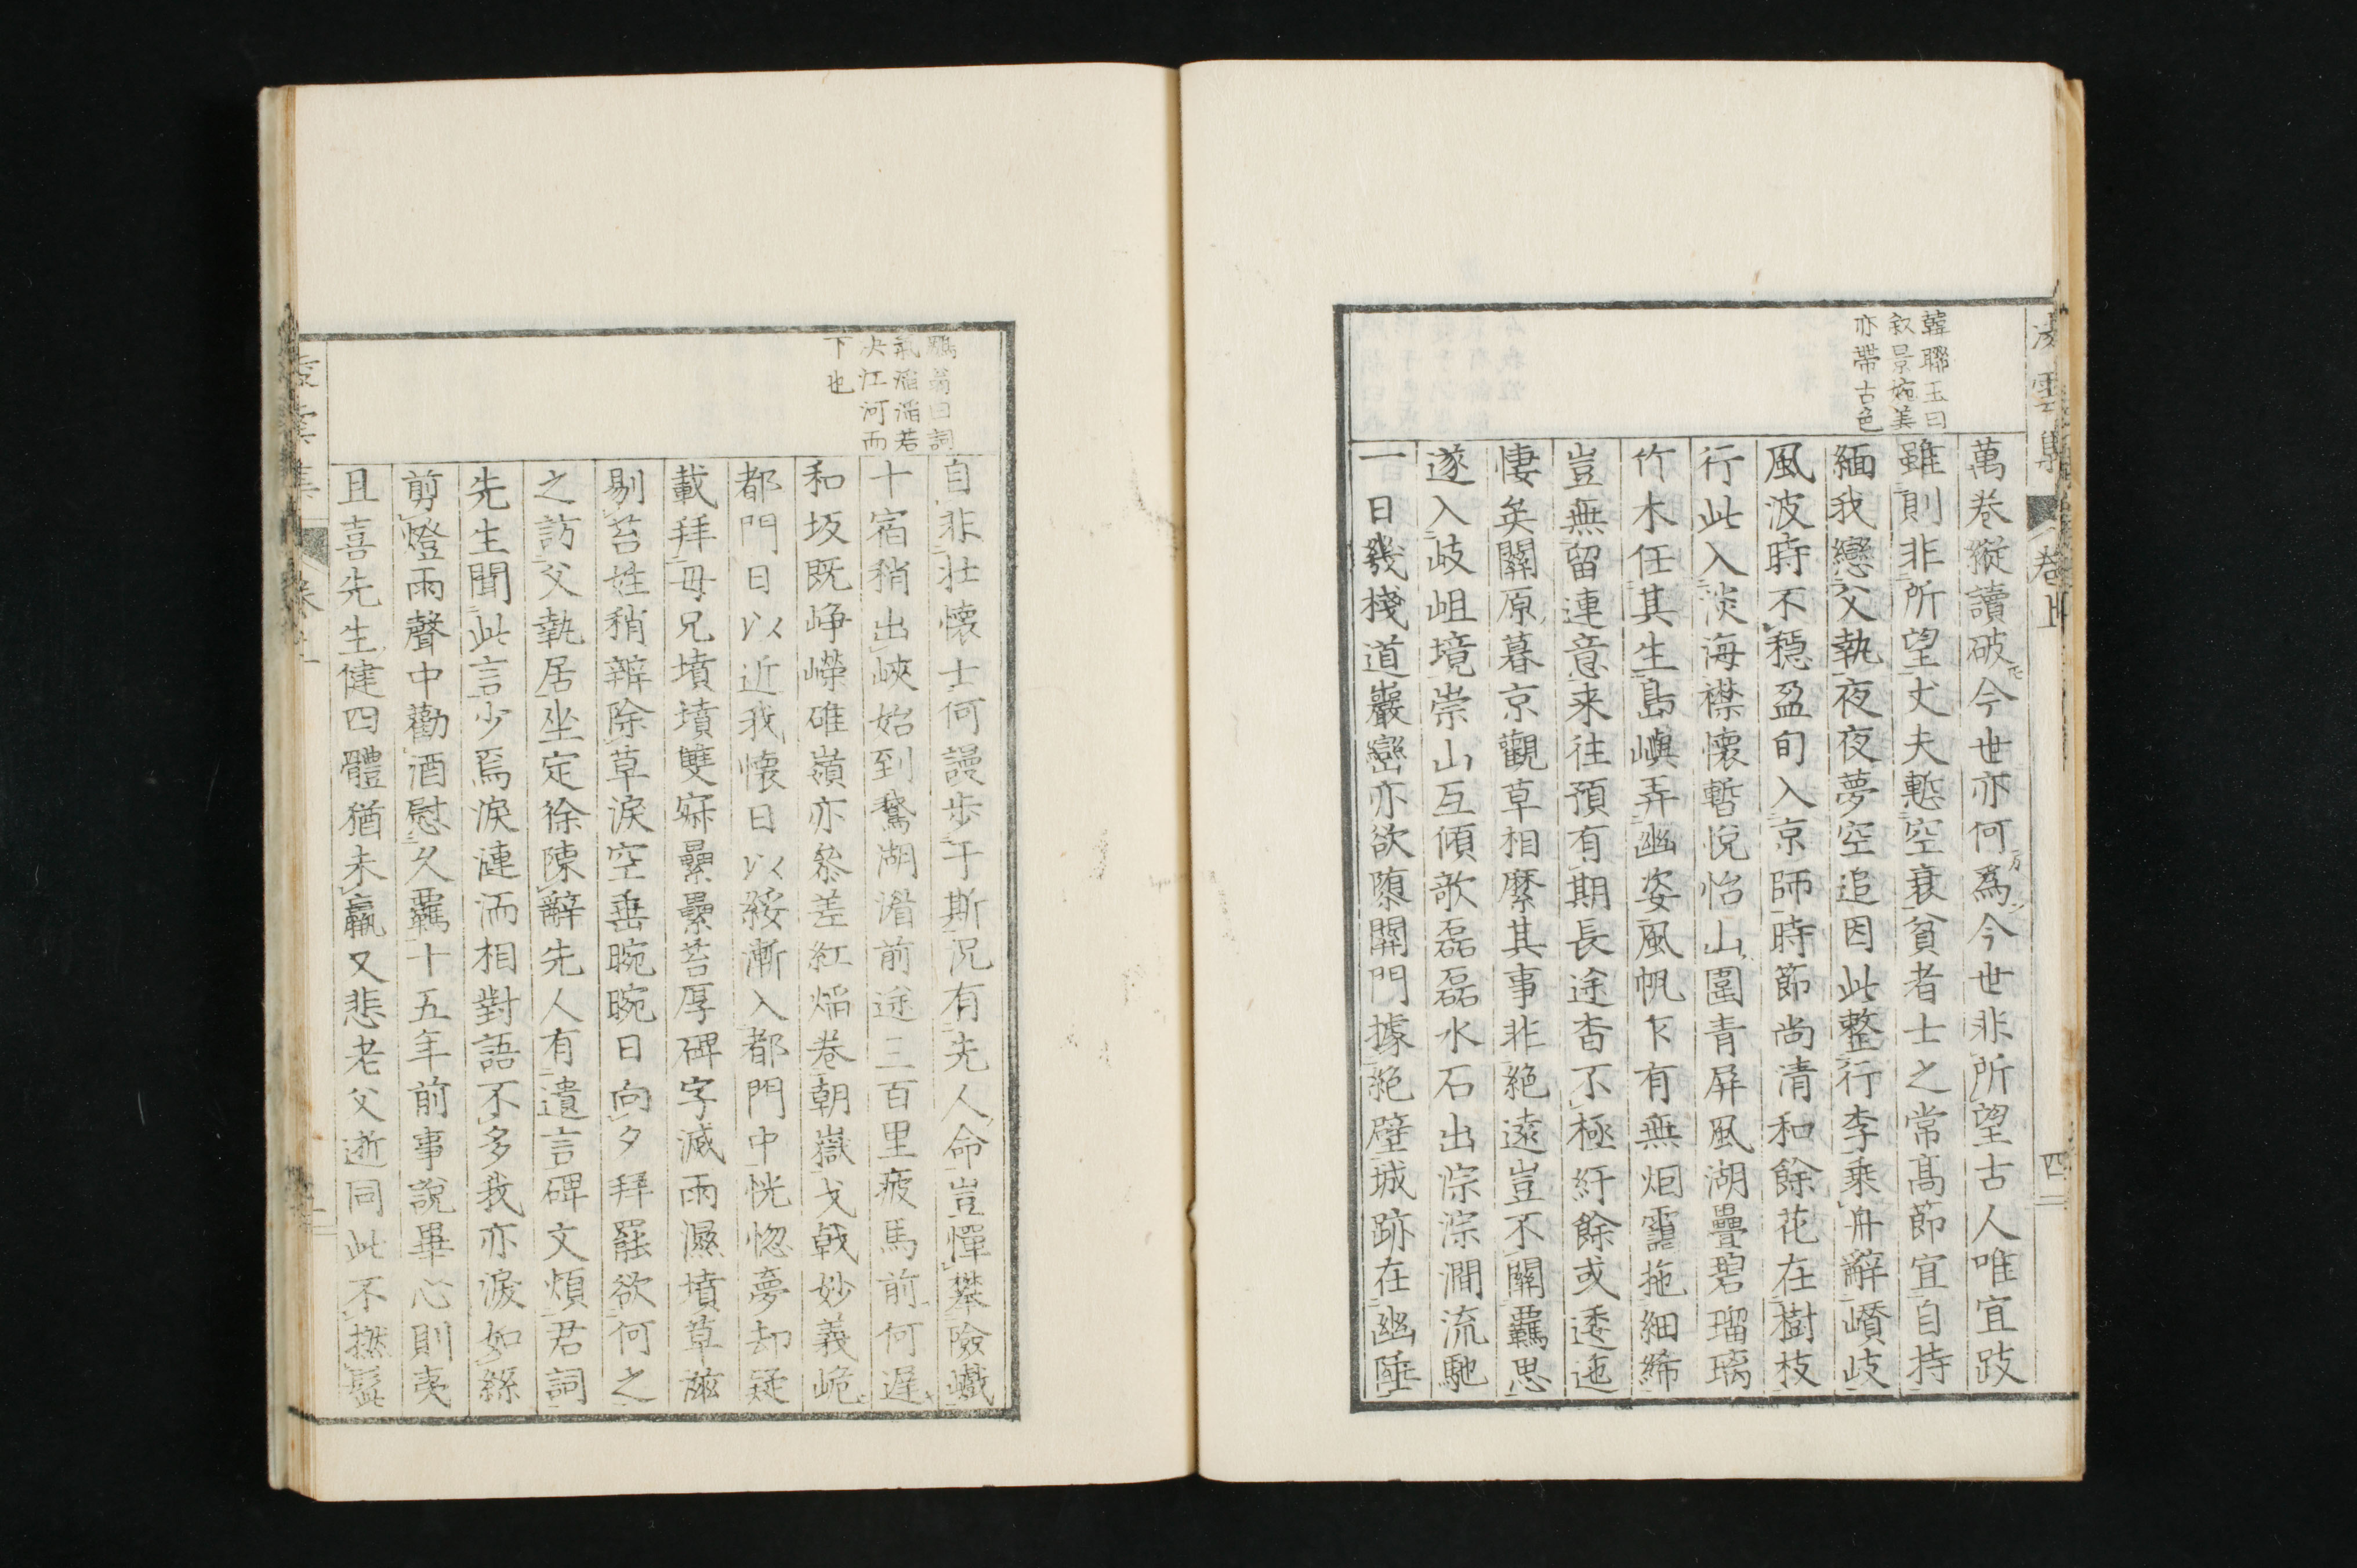 凌雲集 卷上 四
韓聯玉曰
敘景婉美
亦帶古色
萬卷縱讀破今世亦何爲今世非所望古人唯宜跂
雖則非所望丈夫慙空衰貧者士之常髙節宜自持
緬我戀父執夜夜夢空追因此整行李乗舟辭巑岐
風波時不穏盈旬入京師時節尚清和餘花在樹枝
行此入淡海襟懷暫悅怡山圍青屏風湖疊碧瑠璃
竹木任其生島嶼弄幽姿風帆乍有無烟靄拖細絺
豈無留連意来往預有期長途杳不極紆餘或逶迤
悽矣關原暮京觀草相縻其事非絶遠豈不關羈思
遂入岐岨境崇山互傾欹磊磊水石出淙淙澗流馳
一日幾棧道巖巒亦欲隳關門據絶壁城跡在幽陲
鵬翁曰詞
氣滔滔若
决江河而
下也
自非壮懷士何謾歩于斯况有先人命豈憚攀險巇
十宿稍出峽始到鵞湖湄前途三百里疲馬前何遅
和坂既崢嶸碓嶺亦參差紅焔巻朝嶽戈戟妙義峗
都門日以近我懷日以綏漸入都門中恍惚夢却疑
載拜母兄墳墳雙寐纍纍苔厚碑字滅雨濕墳草滋
剔苔姓稍辨除草涙空垂晼晼日向夕拜罷欲何之
之訪父執居坐定徐陳辭先人有遺言碑文煩君詞
先生聞此言少焉涙漣洏相對語不多我亦涙如絲
剪燈雨聲中勸酒慰久羈十五年前事說畢心則夷
且喜先生健四體猶未羸又悲老父逝同此不撚髭
凌雲集